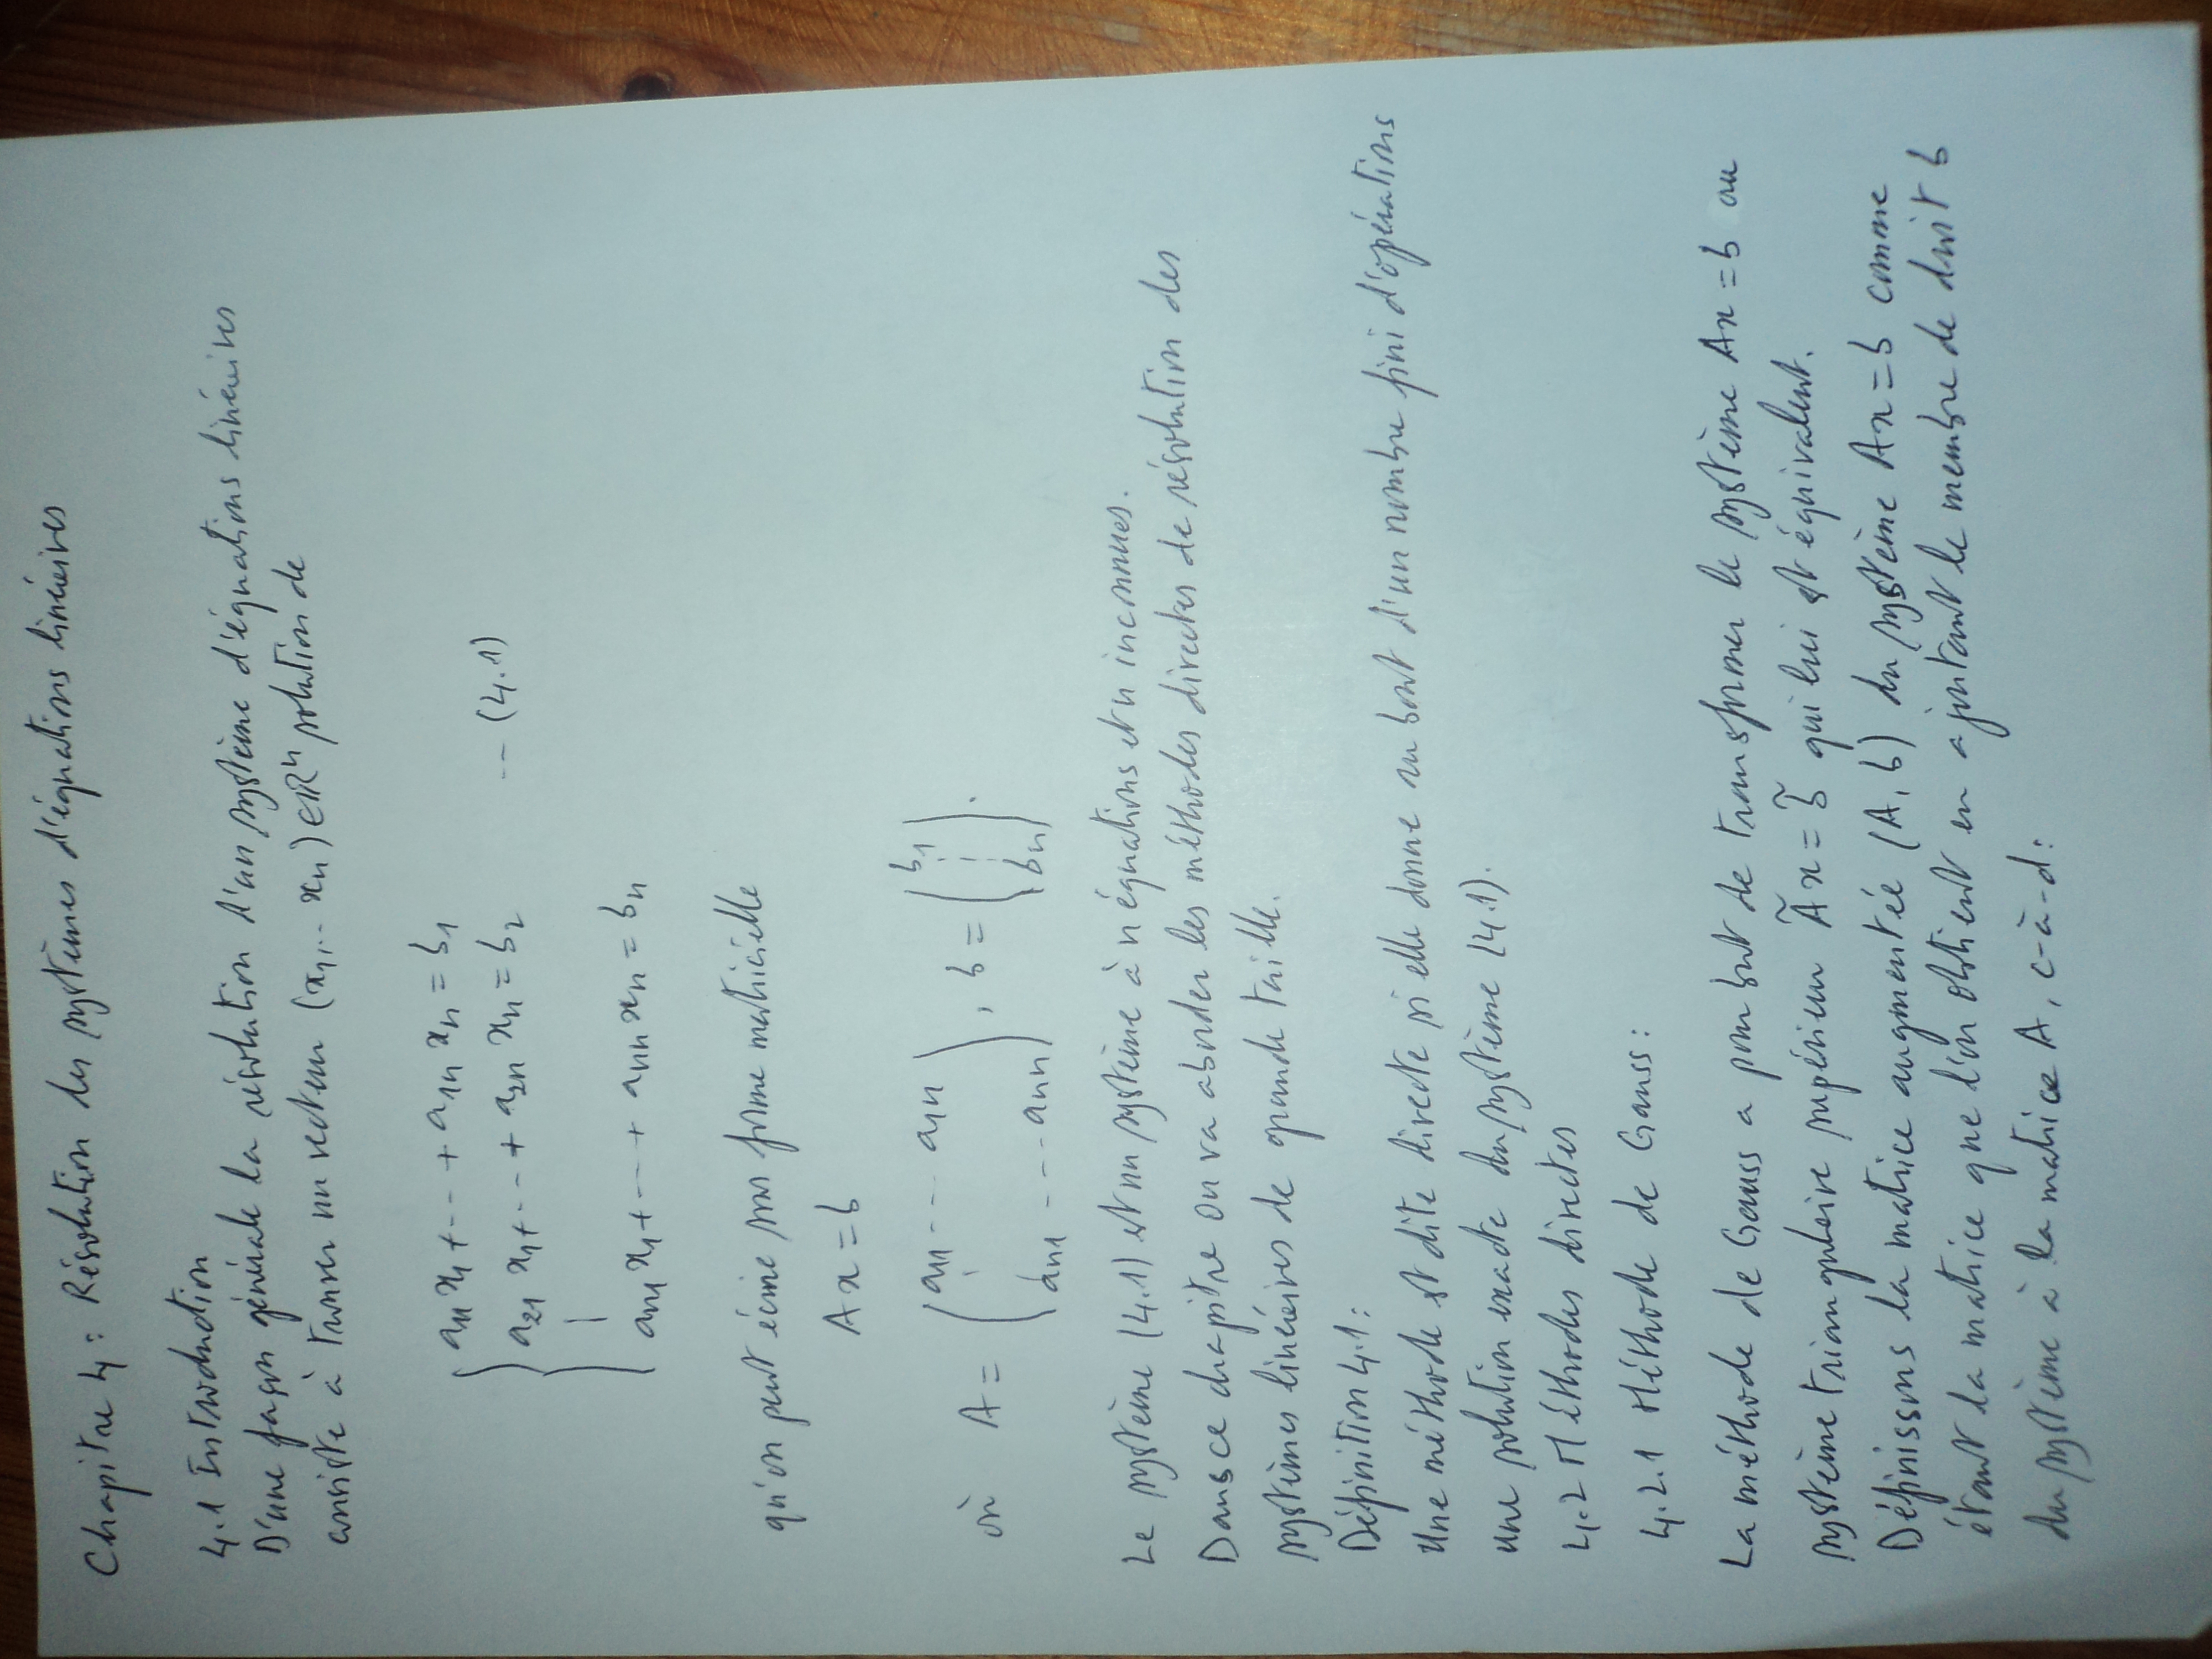 Chapitre 4 : Résolution des systèmes d'équations linéaires
4.1 Introduction
D'une façon générale la résolution d'un système d'équations linéaires
consiste à trouver un vecteur (x1,... xn) ∈ ℝⁿ solution de
a11 x1 + --- + a1n xn = b1
a21 x1 + --- + a2n xn = b2 --- (4.1)
an1 x1 + --- + ann xn = bn
qu'on peut écrire sous forme matricielle
Ax = b
où A = (a11 --- a1n
an1 --- ann), b = (b1
bn).
Le système (4.1) est un système à n équations et n inconnues.
Dans ce chapitre on va aborder les méthodes directes de résolution des
systèmes linéaires de grande taille.
Définition 4.1 :
Une méthode est dite directe si elle donne au bout d'un nombre fini d'opérations
une solution exacte du système (4.1).
4.2 Méthodes directes
4.2.1 Méthode de Gauss :
La méthode de Gauss a pour but de transformer le système Ax = b au
système triangulaire supérieur Ãx = b̃ qui lui est équivalent.
Définissons la matrice augmentée (A, b) du système Ax = b comme
étant la matrice que l'on obtient en ajoutant le membre de droit b
du système à la matrice A, c-à-d :